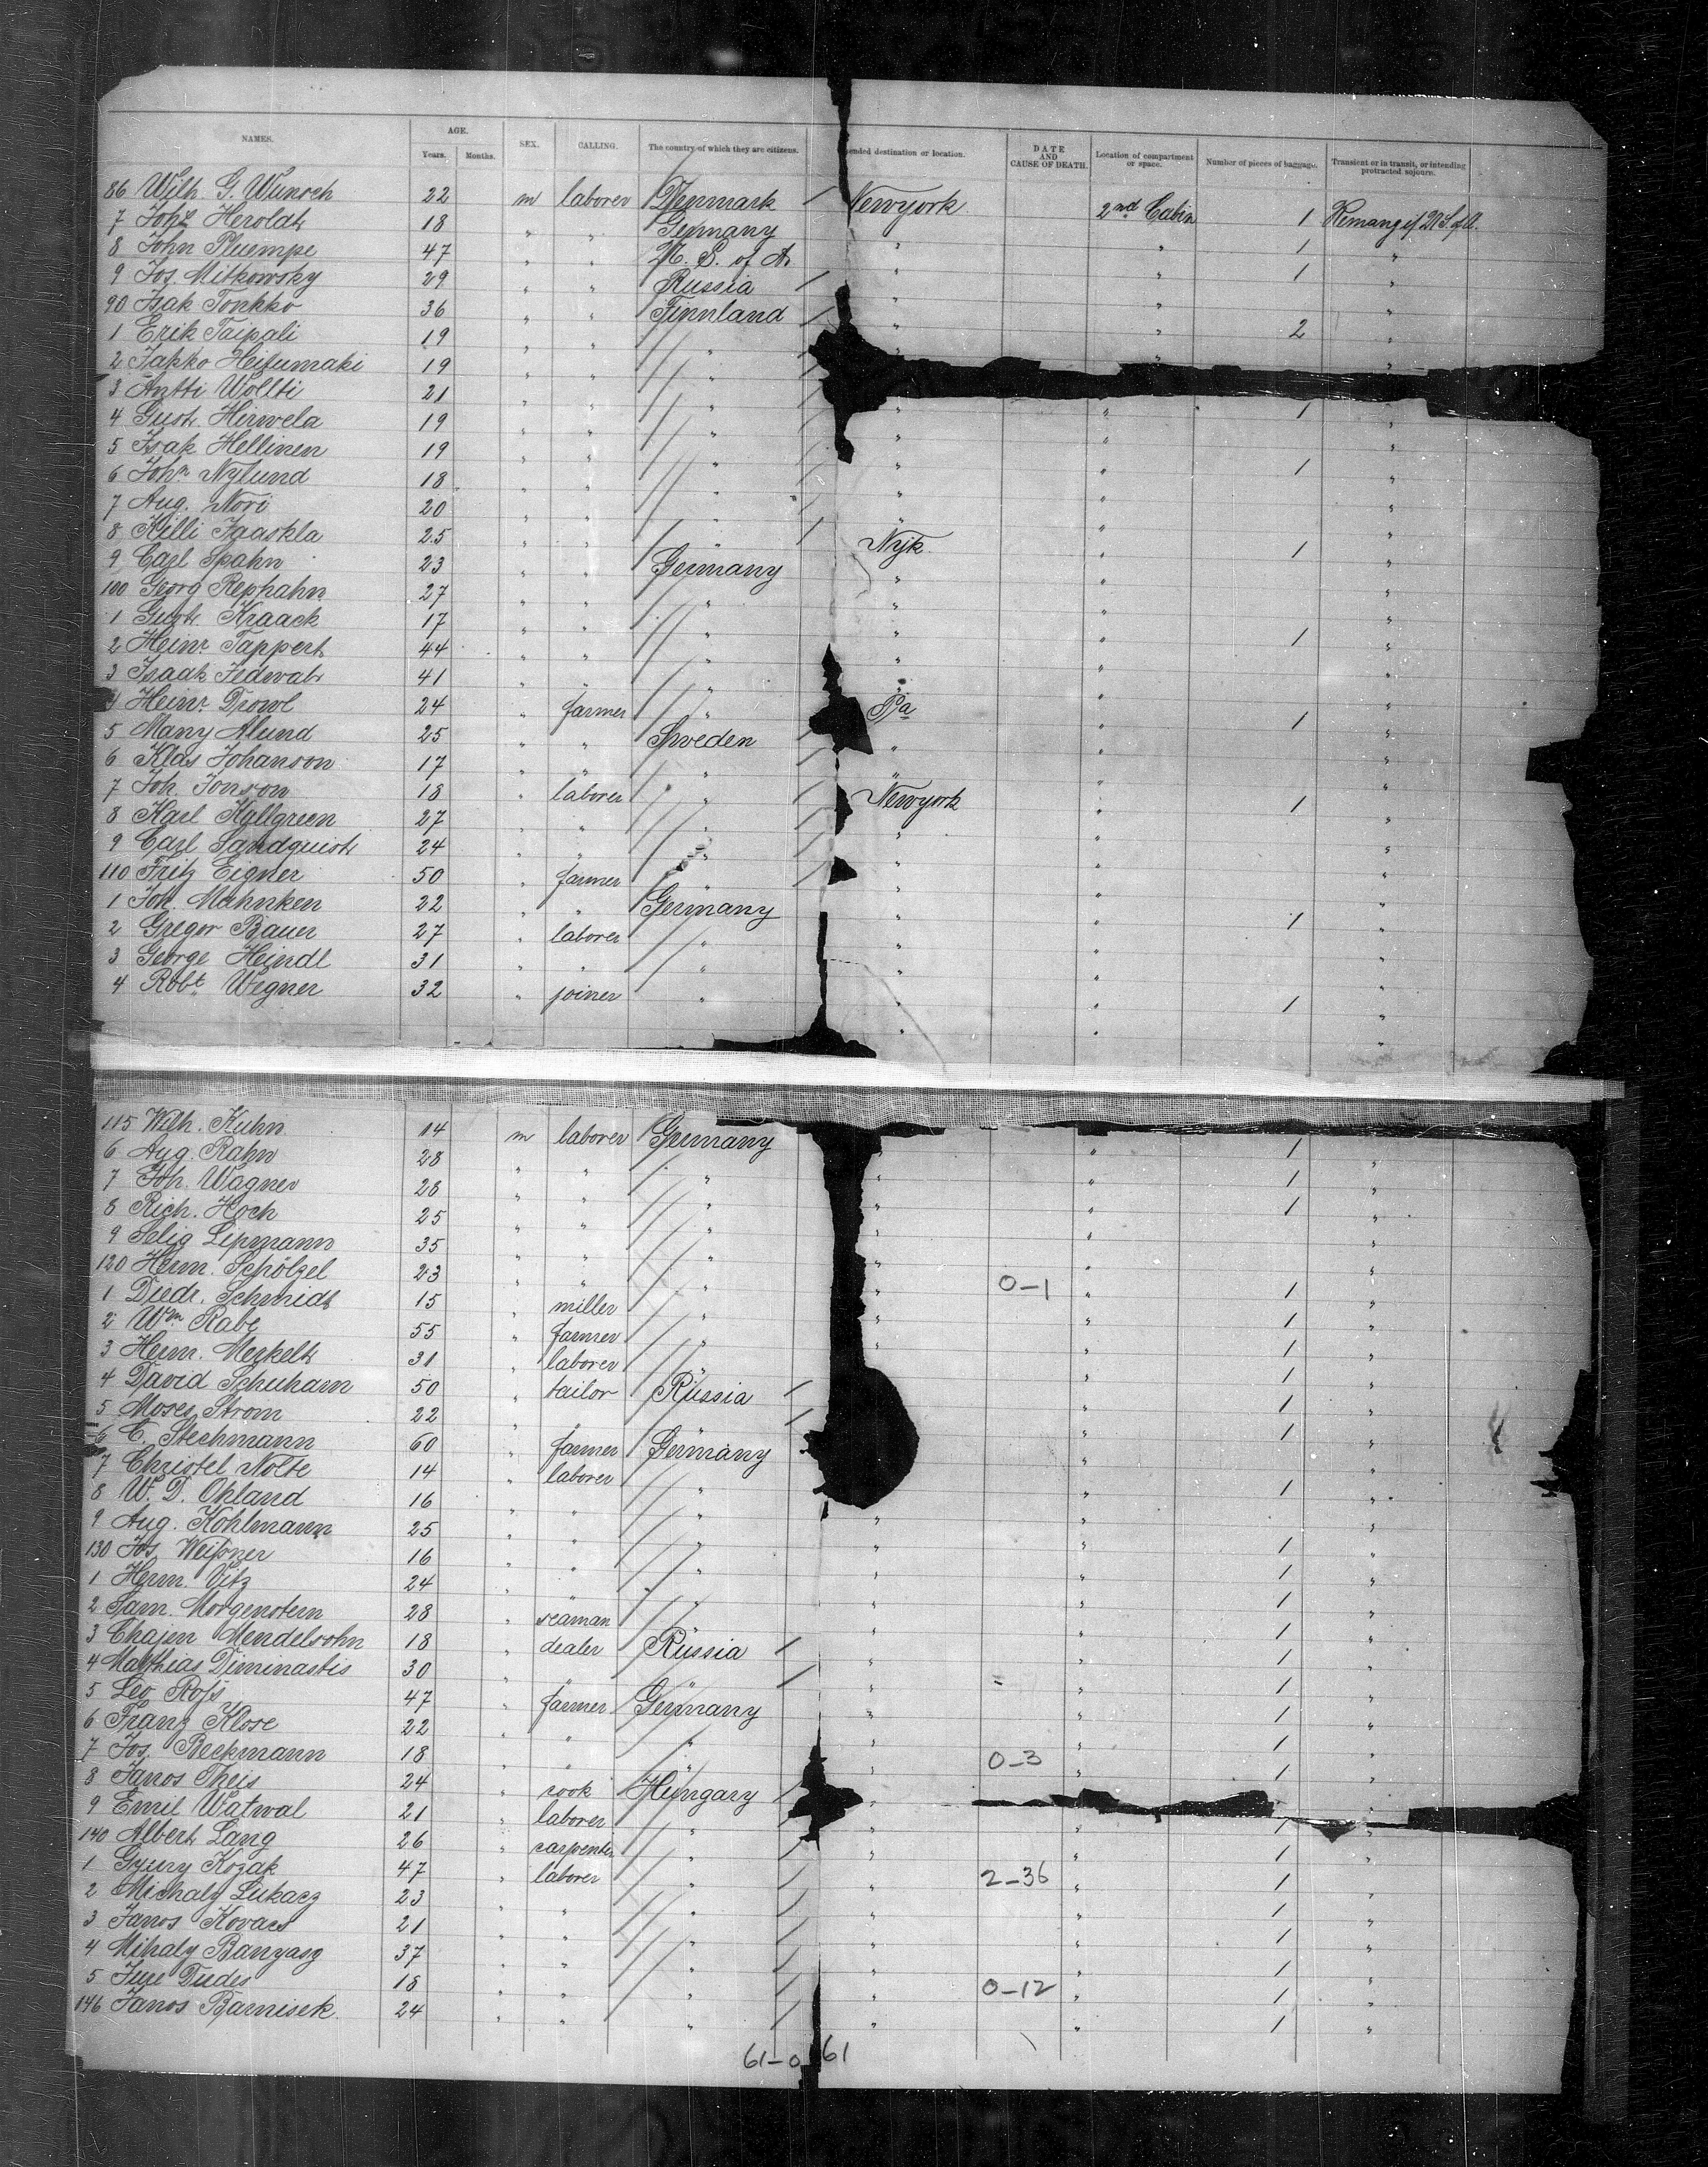 NAMES. AGE. SEX. CALLING. The country of which they are citizens. ended destination or location. DATE AND CAUSE OF DEATH. Location of compartment or space. Number of pieces of baggage. Transient or in transit, or intending protracted sojourn.
Years. Months.
86 Wilh. G. Wunsch 22 m laborer Denmark / Newyork 2nd Cabin 1
7 Heroldt 18 " " Germany " " 1 "
8 John Pluempe 47 " " U. S. of A. " " 1 "
9 Jos. Mitkowsky 29 " " Russia / " " "
90 Isak Tonkko 36 " " Finnland / " " 2 "
1 Erik Taipali 19 " " " / " "
2 Jakko Heifumaki 19 " " " /
3 Antti Wollti 21 " " " / " " 1 "
4 Gust. Hirwela 19 " " " / " " "
5 Isak Hellinen 19 " " " / " " 1 "
6 Joh. Nylund 18 " " " / " " "
7 Aug. Nori 20 " " " / " " "
8 Killi Jaaskla 25 " " " / Nyk. " 1 "
9 Carl Spahn 23 " " Germany " " "
100 Georg Rephahn 27 " " " " " "
1 Gust. Kraack 17 " " " " " 1 "
2 Heinr. Tappert 44 " " " " " "
3 Isaak Jedwab 41 " " " " " "
4 Heinr. Drowl 24 " farmer " Pa " 1 "
5 Many Alund 25 " " Sweden / " " "
6 Klas Johanson 17 " " " / " " "
7 Joh. Jonson 18 " laborer " / Newyork " 1 "
8 Karl Kallgreen 27 " " " / " " "
9 Carl Sandquist 24 " " " / " " "
110 Fritz Eigner 50 " farmer " / " " "
1 Joh. Mahnken 22 " " Germany " " 1 "
2 Gregor Bauer 27 " laborer " " " "
3 George Heindl 31 " " " " " "
4 Robt. Wegner 32 " joiner " " " 1 "
115 Wilh. Kuhn 14 m laborer Germany " 1 "
6 Aug. Rahn 28 " " " " " 1 "
7 Joh. Wagner 28 " " " " " 1 "
8 Rich. Hoch 25 " " " " " "
9 Selig Lipmann 35 " " " " " "
120 Herm. Schölzel 23 " " " " 0-1 " 1 "
1 Diedr. Schmidt 15 " miller " " " 1 "
2 Wm Rabe 55 " farmer " " " 1 "
3 Herm. Merkelt 31 " laborer " " 1 "
4 David Schuham 50 " tailor Russia / " 1 "
5 Moses Strom 22 " " " / " 1 "
6 C. Stechmann 60 " farmer Germany " "
7 Christel Nolte 14 " laborer " " 1 "
8 W. D. Ohland 16 " " " " " "
9 Aug. Kohlmann 25 " " " " " 1 "
130 Jos. Weißner 16 " " " " " 1 "
1 Herm. Vitz 24 " " " " " 1 "
2 Sam. Morgenstern 28 " seaman " " " 1 "
3 Chajen Mendelsohn 18 " dealer Russia / " " 1 "
4 Matthias Diminastis 30 " " " / " " 1 "
5 Leo Roß 47 " farmer Germany " " 1 "
6 Franz Klose 22 " " " " " 1 "
7 Jos. Beckmann 18 " " " " 0-3 " 1 "
8 Janos Theis 24 " cook Hungary / "
9 Emil Watwal 21 " laborer " / " " 1 "
140 Albert Lang 26 " carpenter " / " " 1 "
1 Gyury Kozak 47 " laborer " / " 2-36 " 1 "
2 Michaly Lukacz 23 " " " / " " 1 "
3 Janos Kovacs 21 " " " / " " 1 "
4 Mihaly Banyasz 37 " " " / " " 1 "
5 Jure Dudes 18 " " " / " 0-12 " 1 "
146 Janos Barnisek 24 " " " / " " 1 "
61-0 61